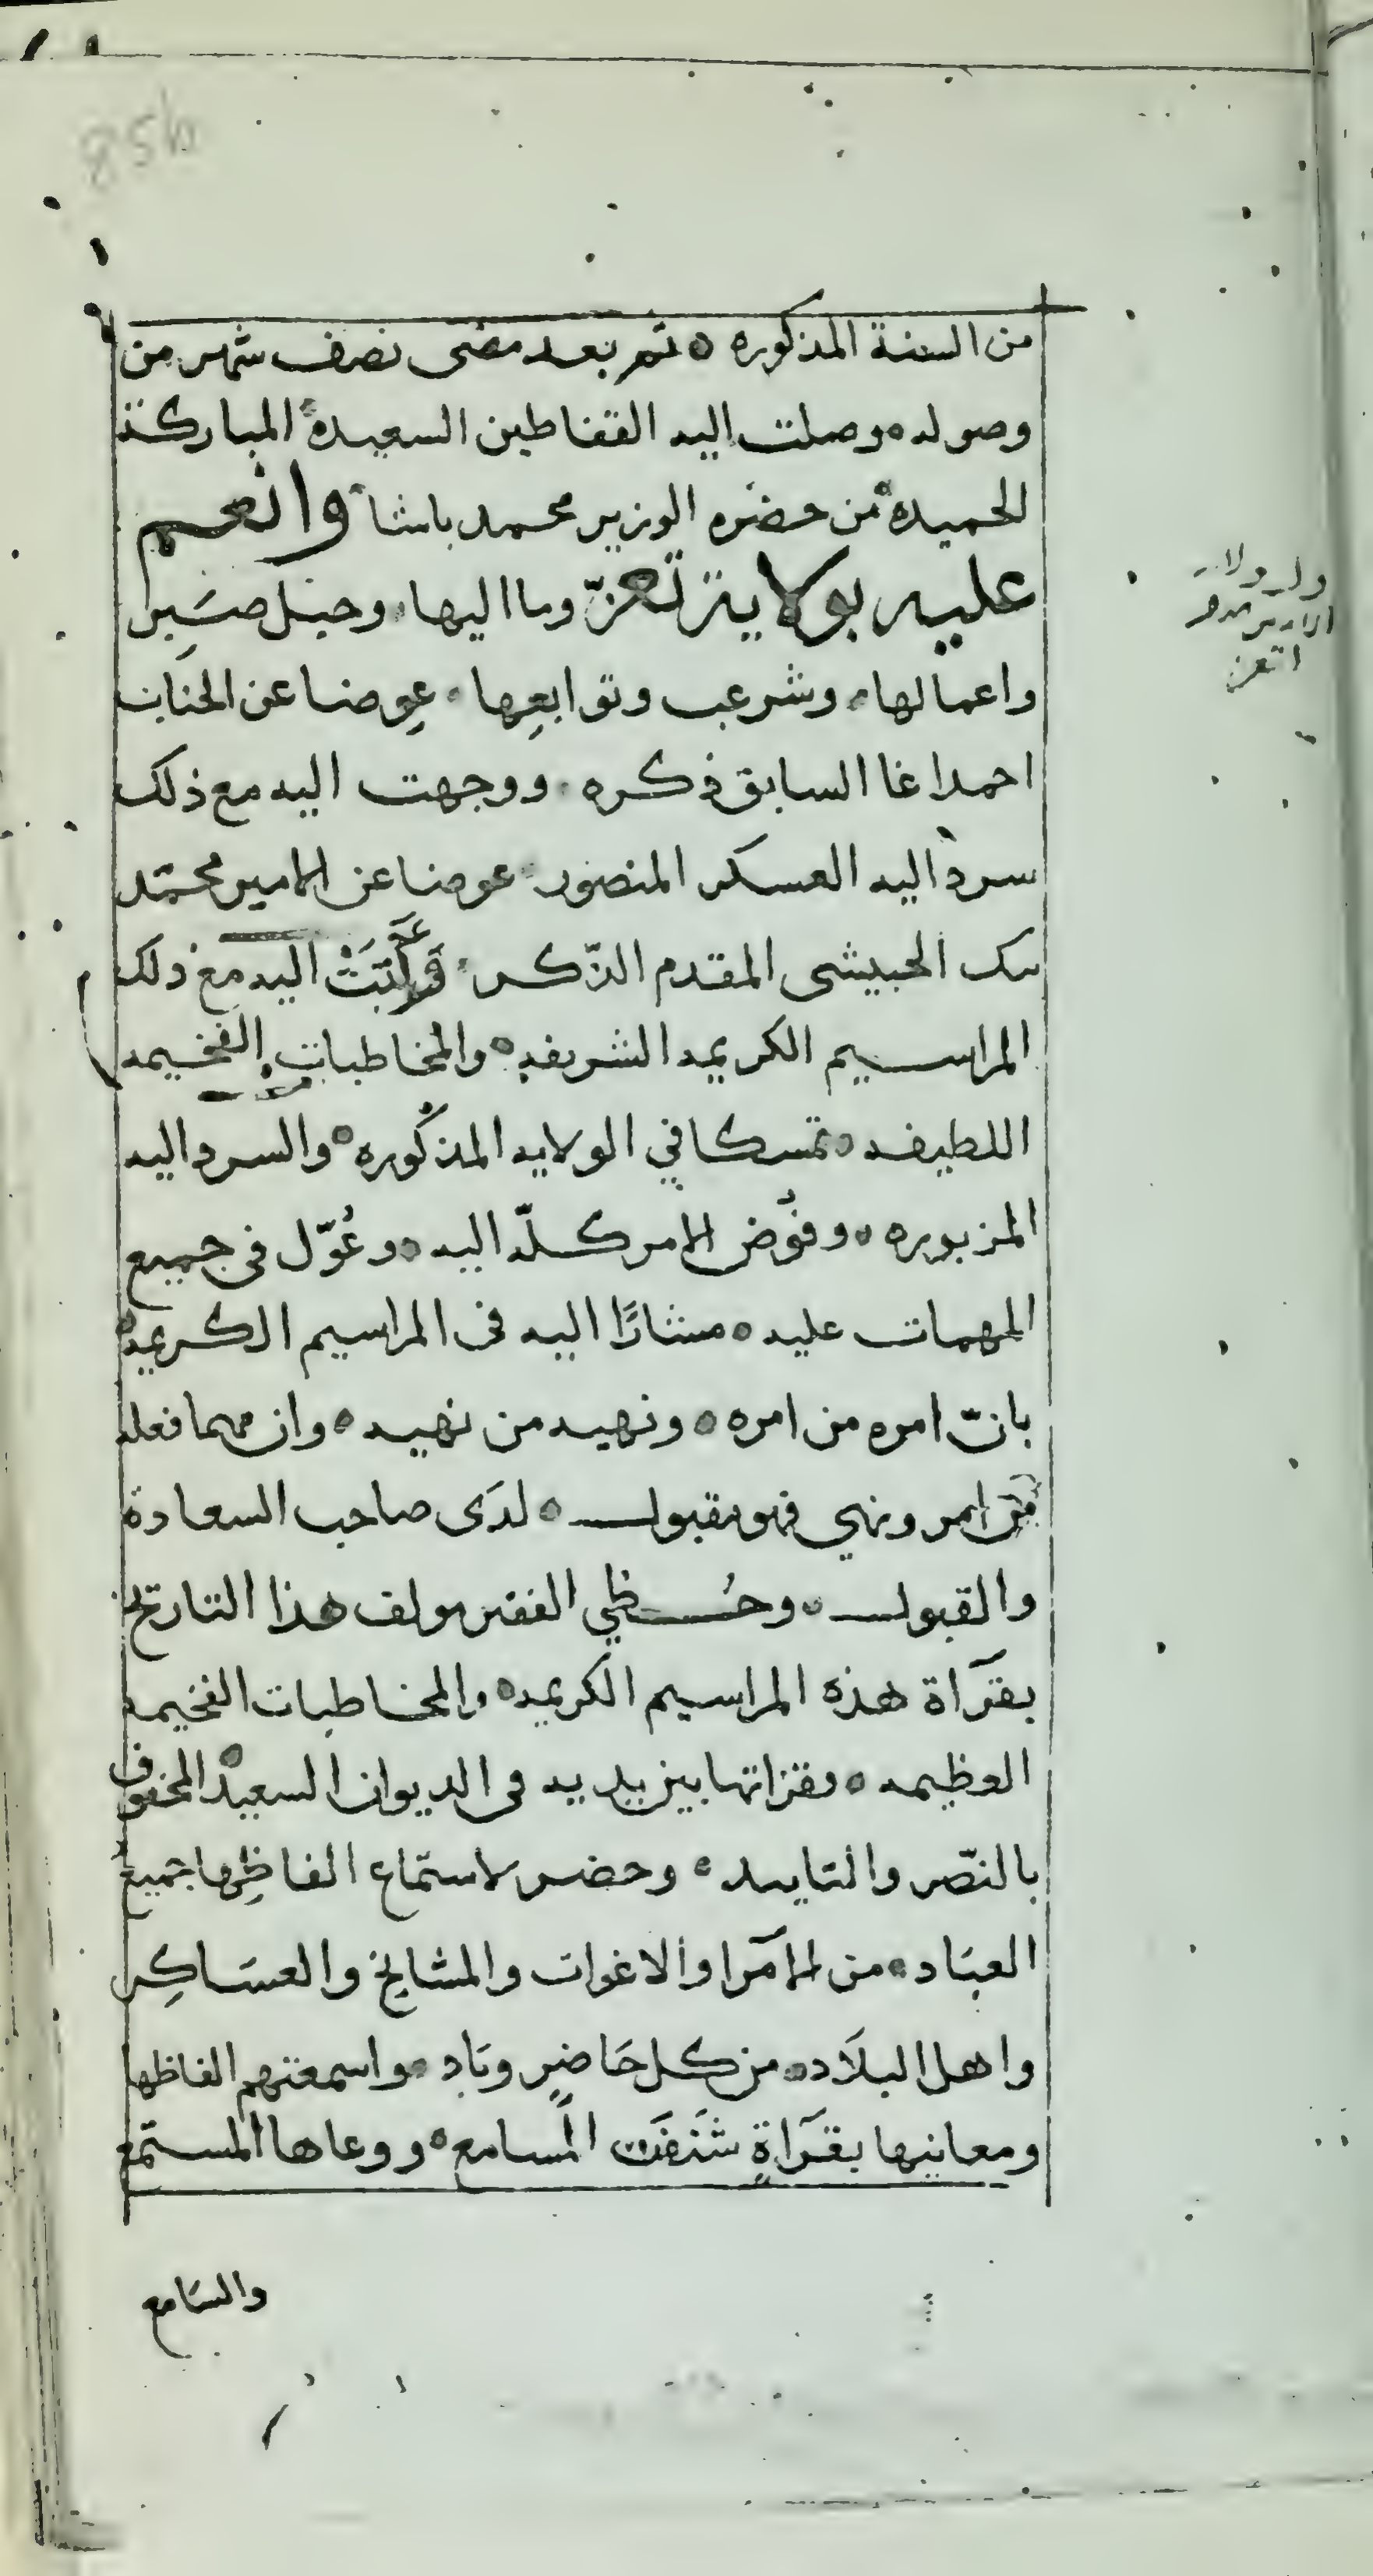 85b
من السنة المذكوره ه ثم بعد مضى نصف شهر من
وصوله ه وصلت اليه القفاطين السعيدة المباركة
الحميدة من حضره الوزير محمد باشا وانعم
عليه بولاية تعزّ وما اليها ه وجبل صَبِر
واعمالها ه وشرعب وتوابعِها ه عِوضا عن الجناب
احمد اغا السابق ذكره ه ووجهت اليه مع ذلك
سرداليه العسكر المنصور ه عوضا عن الامير محمّد
بك الحبيشى المقدم الذّكر ه وكتبَتْ اليه مع ذلك
المراسيم الكريمه الشريفه ه والمخاطبات الفخيمه
اللطيفه ه تمسكا في الولايه المذكوره ه والسرداليه
المزبوره ه وفوّض الامر كلّه اليه ه وعُوّل فى جميع
المهمات عليه ه مشارًا اليه فى المراسيم الكريمه
بانّ امره من امره ه ونهيه من نهيه ه وان مهما فعله
من امر ونهي فهو مقبول ه لدَى صاحب السعادة
والقبول ه وحُظي الفقير مولف هذا التاريخ
بقرآة هذه المراسيم الكريمه ه والمخاطبات الفخيمه
العظيمه ه وقراتها بين يديه فى الديوان السعيد ه المحفوف
بالنّصر والتاييد ه وحضر لاستماع الفاظِها جميع
العبَاد ه من الامرا والاغوات والمشايخ والعسَاكِر
واهل البلاد ه من كل حَاضرٍ وبَادٍ ه واسمعتهم الفاظها
ومعانيها بقرَآةٍ شَنفَت المسامع ه ووعاها المستمع
والسَامع